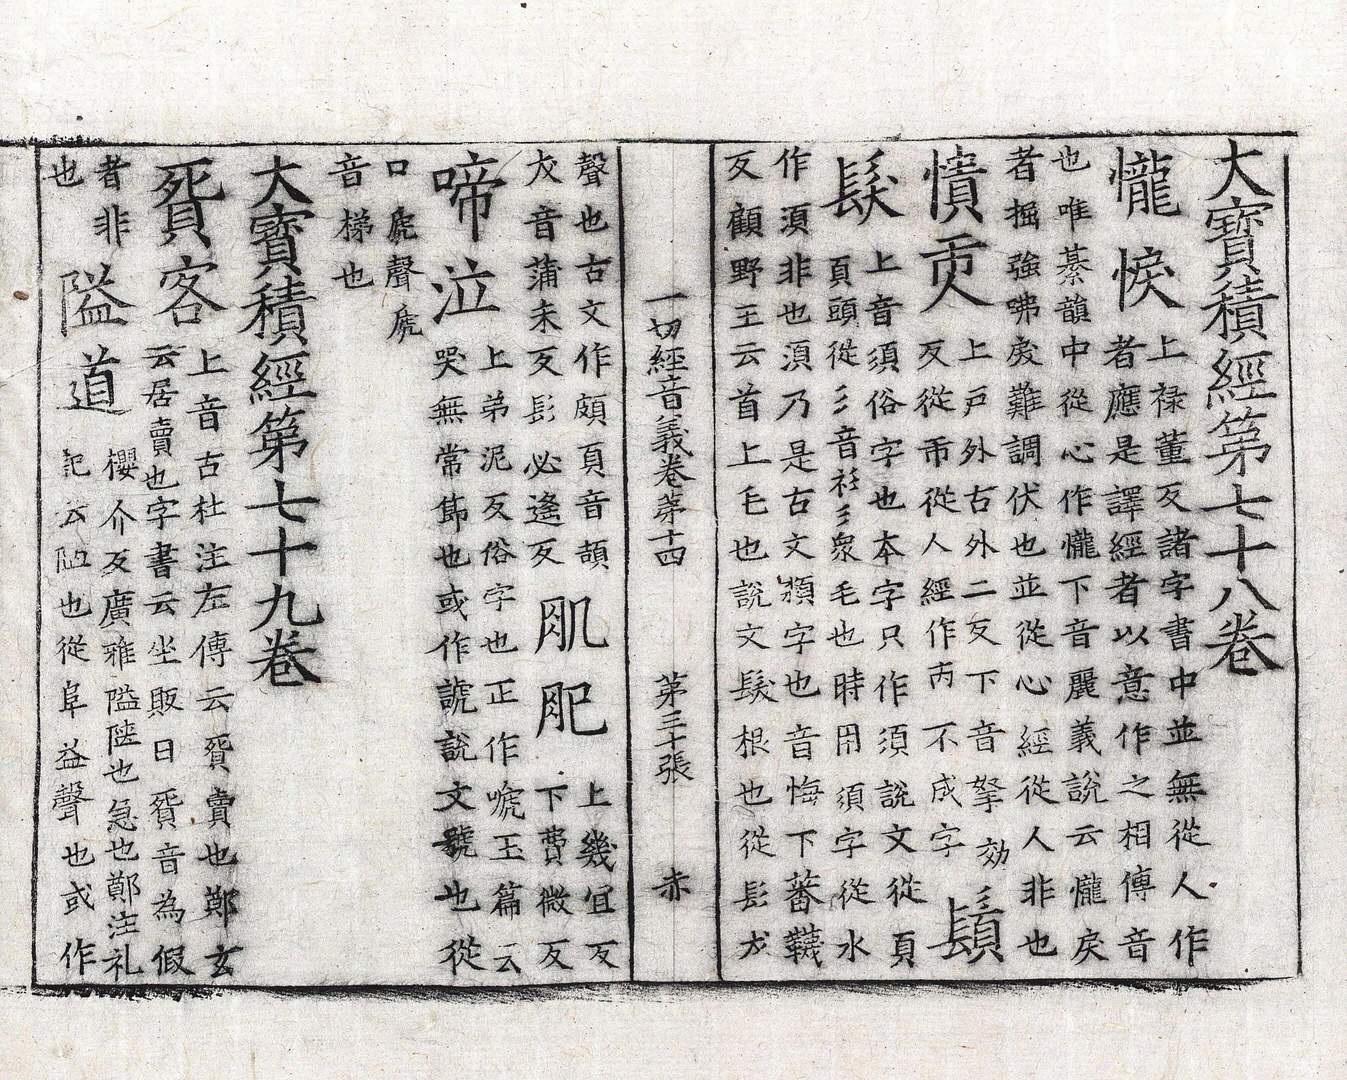 大寶積經第七十八卷
𢤲悷
上祿董反諸字書中並無從人作
者應是譯經者以意作之相傳音
也唯綦韻中從心作𢤲下音麗義說云𢤲戾
者掘強咈戾難調伏也並從心經從人非也
憒丙
上戶外古外二反下音拏効
反從市從人經作丙不成字
鬚
髮
上音須俗字也本字只作須說文從頁
頁頭從彡音衫彡衆毛也時用須字從水
作湏非也湏乃是古文頮字也音悔下蕃韈
反顧野王云首上毛也說文髮根也從髟犮
一切經音義卷第十四
第三十張
赤
聲也古文作頗頁音頡
犮音蒲末反髟必遙反
肌肥
上幾宜反
下費微反
啼泣
上弟泥反俗字也正作嗁玉篇云
哭無常節也或作謕說文號也從
口虒聲虒
音梯也
大寶積經第七十九卷
貿客
上音古杜注左傳云貿賣也鄭玄
云居賣也字書云坐販曰貿音為假
者非
隘道
櫻介反廣雅隘陿也急也鄭注礼
記云陋也從阜益聲也或作
也